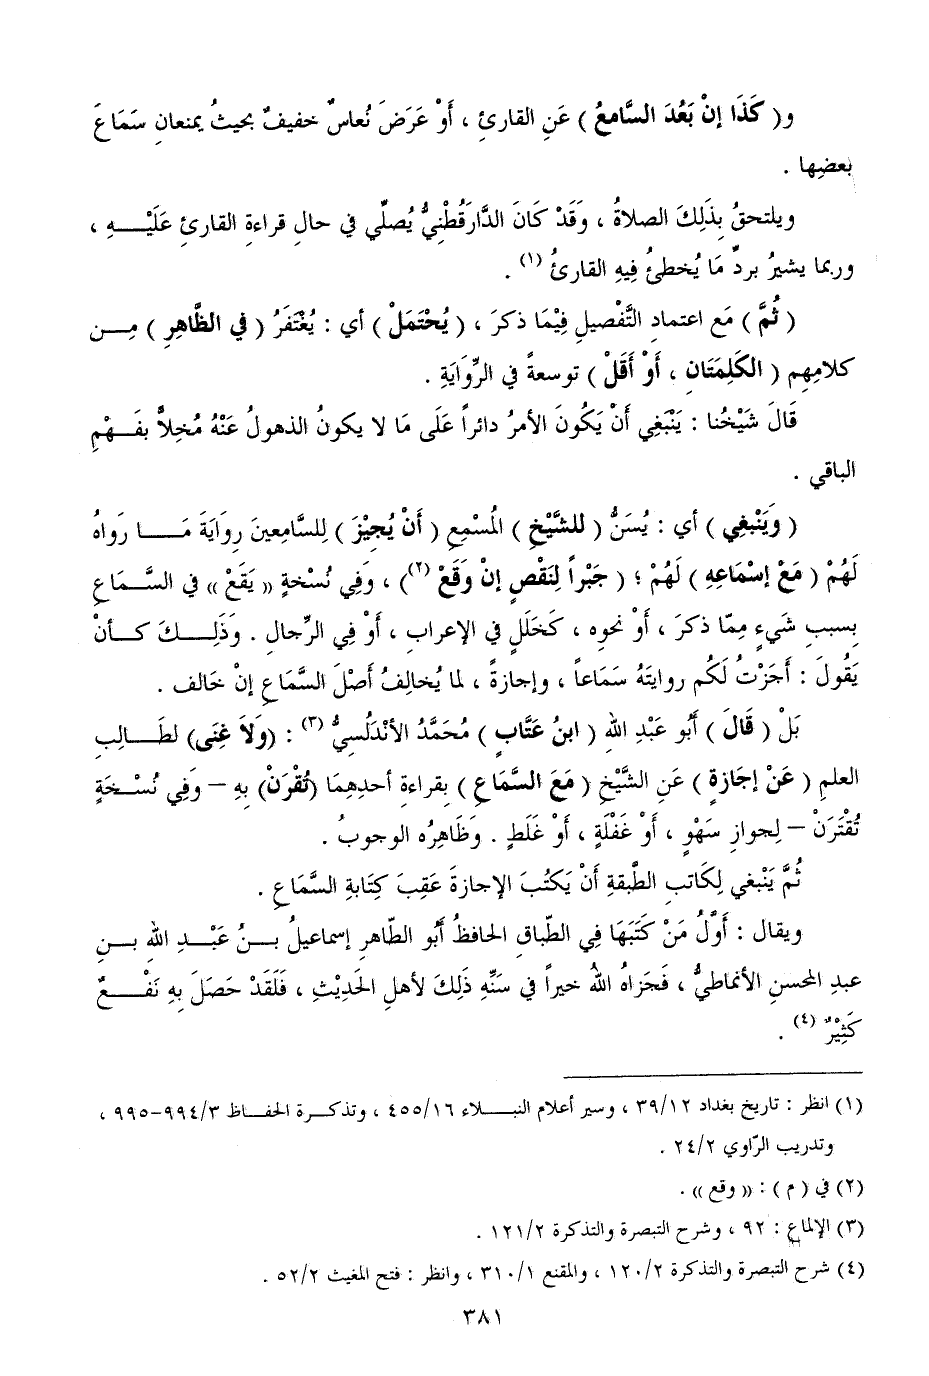 و( كَذَا إنْ بَعُدَ السَّامعُ ) عَنِ القارئِ ، أَوْ عَرَضَ نُعاسٌ خفيفٌ بحيثُ يمنعانِ سَمَاعَ
بعضِها .
ويلتحقُ بِذَلِكَ الصلاةُ ، وَقَدْ كَانَ الدَّارَقُطْنِيُّ يُصلّي في حالِ قراءةِ القارئِ عَلَيْـــهِ ،
وربما يشيرُ بردِّ مَا يُخطئُ فِيهِ القارئُ (١) .
( ثُمَّ ) مَع اعتمادِ التَّفْصيلِ فِيْمَا ذكرَ ، ( يُحْتَمَلْ ) أي : يُغْتَفَرُ ( في الظَّاهِرِ ) مِــن
كلامِهِم ( الكَلِمَتَانِ ، أَوْ أَقَلْ ) توسعةً في الرِّوَايَةِ .
قَالَ شَيْخُنا : يَنْبَغِي أَنْ يَكُونَ الأمرُ دائراً عَلَى مَا لا يكون الذهولُ عَنْهُ مُخِلاًّ بفَـــهْمِ
الباقي .
( وَيَنْبَغِي ) أي : يُسَنُّ ( للشَّيْخِ ) المُسْمِعِ ( أَنْ يُجِيْزَ ) لِلسَّامعِينَ رِوَايَةَ مَـــا رَوَاهُ
لَهُمْ ( مَعْ إسْمَاعِهِ ) لَهُمْ ؛ ( جَبْراً لِنَقْصٍ إنْ وَقَعْ (٢) ) ، وَفِي نُسْخةٍ « يَقَعْ » في السَّــمَاعِ
بسببِ شَيءٍ مِمّا ذكرَ ، أَوْ نحوِه ، كَخَلَلٍ في الإعرابِ ، أَوْ فِي الرِّجالِ . وَذَلِــكَ كــأنْ
يَقُولَ : أَجَزْتُ لَكُم روايتَهُ سَمَاعاً ، وإجازةً ، لما يُخالِفُ أَصْلَ السَّماعِ إنْ خَالف .
بَلْ ( قَالَ ) أَبُو عَبْدِ اللهِ ( ابنُ عَتَّابٍ ) مُحَمَّدُ الأَنْدَلُسِيُّ (٣) : (وَلاَ غِنَى) لطَـــالِبِ
العلمِ ( عَنْ إجَازةٍ ) عَنِ الشَّيْخِ ( مَعَ السَّمَاعِ ) بقراءةِ أحدِهِمَا (تُقْرَنْ) بِهِ – وَفِي نُسْـــخةٍ
تُقْتَرَنْ – لِجوازِ سَهْوٍ ، أَوْ غَفْلَةٍ ، أَوْ غَلَطٍ . وَظَاهِرُه الوجوبُ .
ثُمَّ يَنْبَغي لِكَاتبِ الطَّبقةِ أَنْ يَكتُبَ الإجازةَ عَقِبَ كِتَابةِ السَّمَاعِ .
ويقال : أَوَّلُ مَنْ كَتَبَهَا فِي الطّباقِ الحافظُ أَبُو الطّاهرِ إسماعيلُ بـــنُ عَبْـــدِ اللهِ بــنِ
عبدِ المحسنِ الأنماطيُّ ، فَجَزاهُ اللهُ خيراً في سَنِّهِ ذَلِكَ لأهلِ الحَدِيْثِ ، فَلَقَدْ حَصَلَ بِهِ نَفْـــعٌ
كَثِيْرٌ (٤) .
(١) انظر : تاريخ بغداد ٣٩/١٢ ، وسير أعلام النبـــلاء ٤٥٥/١٦ ، وتذكــرة الحفــاظ ٩٩٤/٣-٩٩٥ ،
وتدريب الرّاوي ٢٤/٢ .
(٢) في ( م ) : « وقع » .
(٣) الإلماع : ٩٢ ، وشرح التبصرة والتذكرة ١٢١/٢ .
(٤) شرح التبصرة والتذكرة ١٢٠/٢ ، والمقنع ٣١٠/١ ، وانظر : فتح المغيث ٥٢/٢ .
٣٨١